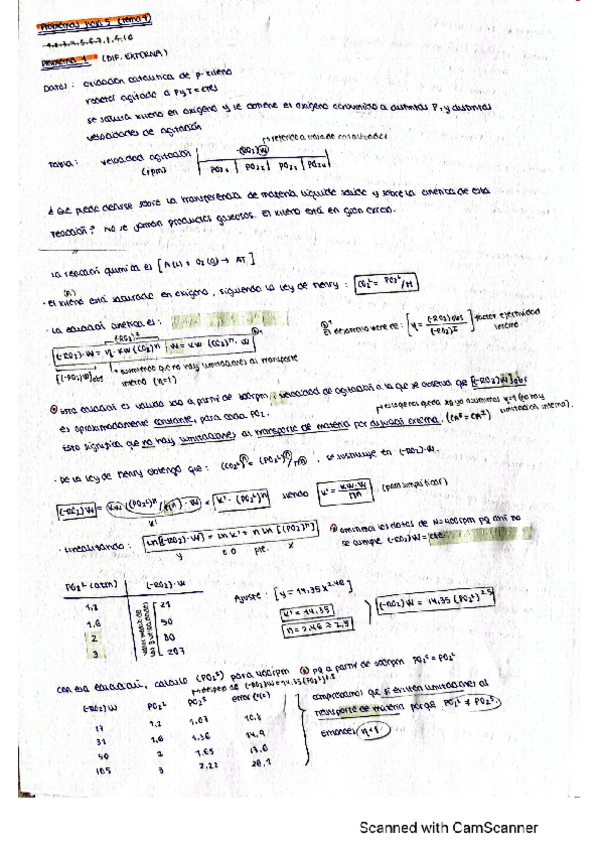 Problemas para 5 (tema 4)
1.2.3.4.5.6.7.8.9.10
Problema 1 (DIF. EXTERNA)
Datos: oxidación catalítica de p-xileno
reactor agitado a P y T = ctes
se satura xileno en oxígeno y se obtiene el oxígeno consumido a distintas P, y distintas
velocidades de agitación
referido a masa de catalizador
Tabla: velocidad agitación (-RO2) W
(rpm) PO2₁ PO2₂ PO2₃ PO2₄
¿Qué puede decirse sobre la transferencia de materia líquido sólido y sobre la cinética de esta
reacción? No se forman productos gaseosos. El xileno está en gran exceso.
La reacción química es [A(l) + O2(g) → AT]
(A)
• El xileno está saturado en oxígeno, siguiendo la ley de Henry: CO2ᴸ = PO2ᴸ/H
• La ecuación cinética es:
(-RO2)·W = η·kw (CO2)ⁿ
asumiendo que no hay limitaciones al transporte
interno (η=1)
[(-RO2)W]obs
η = (-RO2)obs / (-RO2)ᴵ factor efectividad
interno
Esta ecuación es válida solo a partir de 800rpm, velocidad de agitación a la que se observa que [(-RO2)W]obs
es aproximadamente constante, para cada PO2.
Esto significa que no hay limitaciones al transporte de materia por difusión externa.
• De la ley de Henry obtengo que: (CO2ᴸ)ⁿ = (PO2ᴸ)ⁿ/Hⁿ, se sustituye en (-RO2)·W.
(-RO2)W = kw (PO2ᴸ)ⁿ/Hⁿ · W = k' · (PO2ᴸ)ⁿ siendo k' = kw·W/Hⁿ (para simplificar)
k'
• Linealizando: ln[(-RO2)·W] = ln k' + n ln [(PO2ᴸ)]
y pte. x
omitimos los datos de N=400rpm pq ahí no
se cumple (-RO2)W = cte.
PO2ᴸ (atm) (-RO2)·W
1,2 21
1,6 50
2 80
3 207
Ajuste: [y = 14,35x^2.48]
k' = 14,35
n = 2.48 ≈ 2,5
(-RO2)W = 14,35 (PO2ᴸ)^2.5
Con esa ecuación, calculo (PO2ˢ) para 400rpm pq a partir de 800rpm PO2ˢ = PO2ᴸ
(-RO2)W PO2ᴸ PO2ˢ error (%)
17 1,2 1,07 10,8
31 1,6 1,36 14,9
50 2 1,65 17,6
105 3 2,22
comprobamos que si existen limitaciones al
transporte de materia porque PO2ᴸ ≠ PO2ˢ.
Entonces η<1.
Scanned with CamScanner